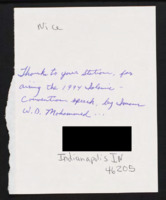 Nice
Thanks to your station, for
airing the 1994 Islamic
Convention speech by Imam
W.D. Mohammed...
Indianapolis IN
46205